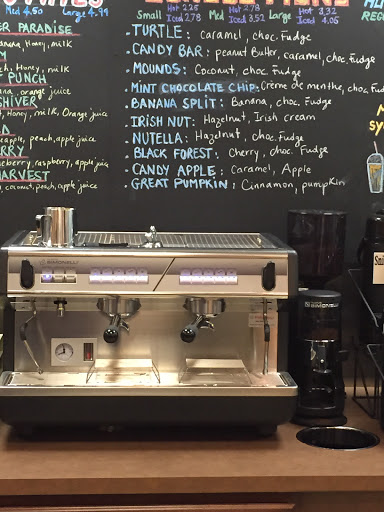 Med 4.50 Large 4.99
PARADISE
Banana, Honey, milk
PUNCH
orange juice
SHIVER
Honey, milk, Orange juice
peach, apple juice
raspberry, apple juice
HARVEST
coconut, peach, apple juice
Hot 2.25 Hot 2.78 Hot 3.32
Small Iced 2.78 Med Iced 3.52 Large Iced 4.05
TURTLE: caramel, choc. Fudge
CANDY BAR: peanut Butter, caramel, choc. Fudge
MOUNDS: Coconut, choc. Fudge
MINT CHOCOLATE CHIP: Crème de menthe, choc. Fud
BANANA SPLIT: Banana, choc. Fudge
IRISH NUT: Hazelnut, Irish cream
NUTELLA: Hazelnut, choc. Fudge
BLACK FOREST: Cherry, choc. Fudge
CANDY APPLE: Caramel, Apple
GREAT PUMPKIN: Cinnamon, pumpkin
SIMONELLI
SIMONELLI